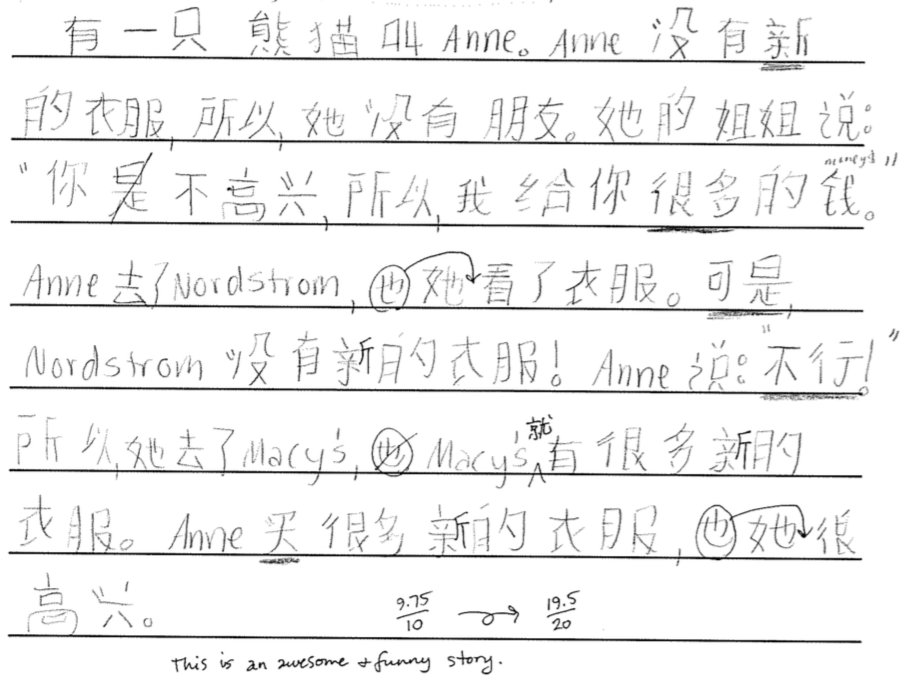 有一只熊猫叫Anne。Anne没有新
的衣服,所以,她没有朋友。她的姐姐说:
money!
"你是不高兴,所以,我给你很多的钱。"
Anne去了Nordstrom,也她看了衣服。可是,
Nordstrom没有新的衣服!Anne说:"不行!"
就
所以,她去了Macy's,也Macy's有很多新的
衣服。Anne买很多新的衣服,也她很
高兴。
9.75/10 19.5/20
This is an awesome & funny story.